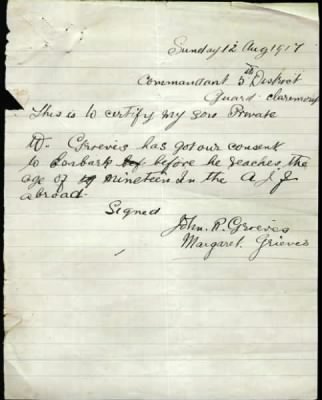 Sunday 12 Aug 1917
Commandant 5th District
Guard Claremont
This is to certify my son Private
W. Grieves has got our consent
to Banbark before he reaches the
age of 19 nineteen in the A.I.F
abroad.
Signed
John. R. Grieves
Margaret. Grieves